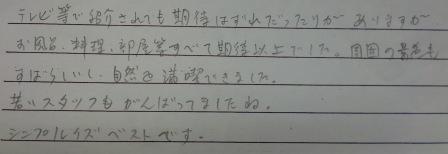 テレビ等で紹介されても期待はずれだったりが ありますが
お風呂、料理、部屋等すべて期待以上でした。周囲の景色も
すばらしいし、自然を満喫できました。
若いスタッフもがんばってましたね。
シンプルイズベストです。